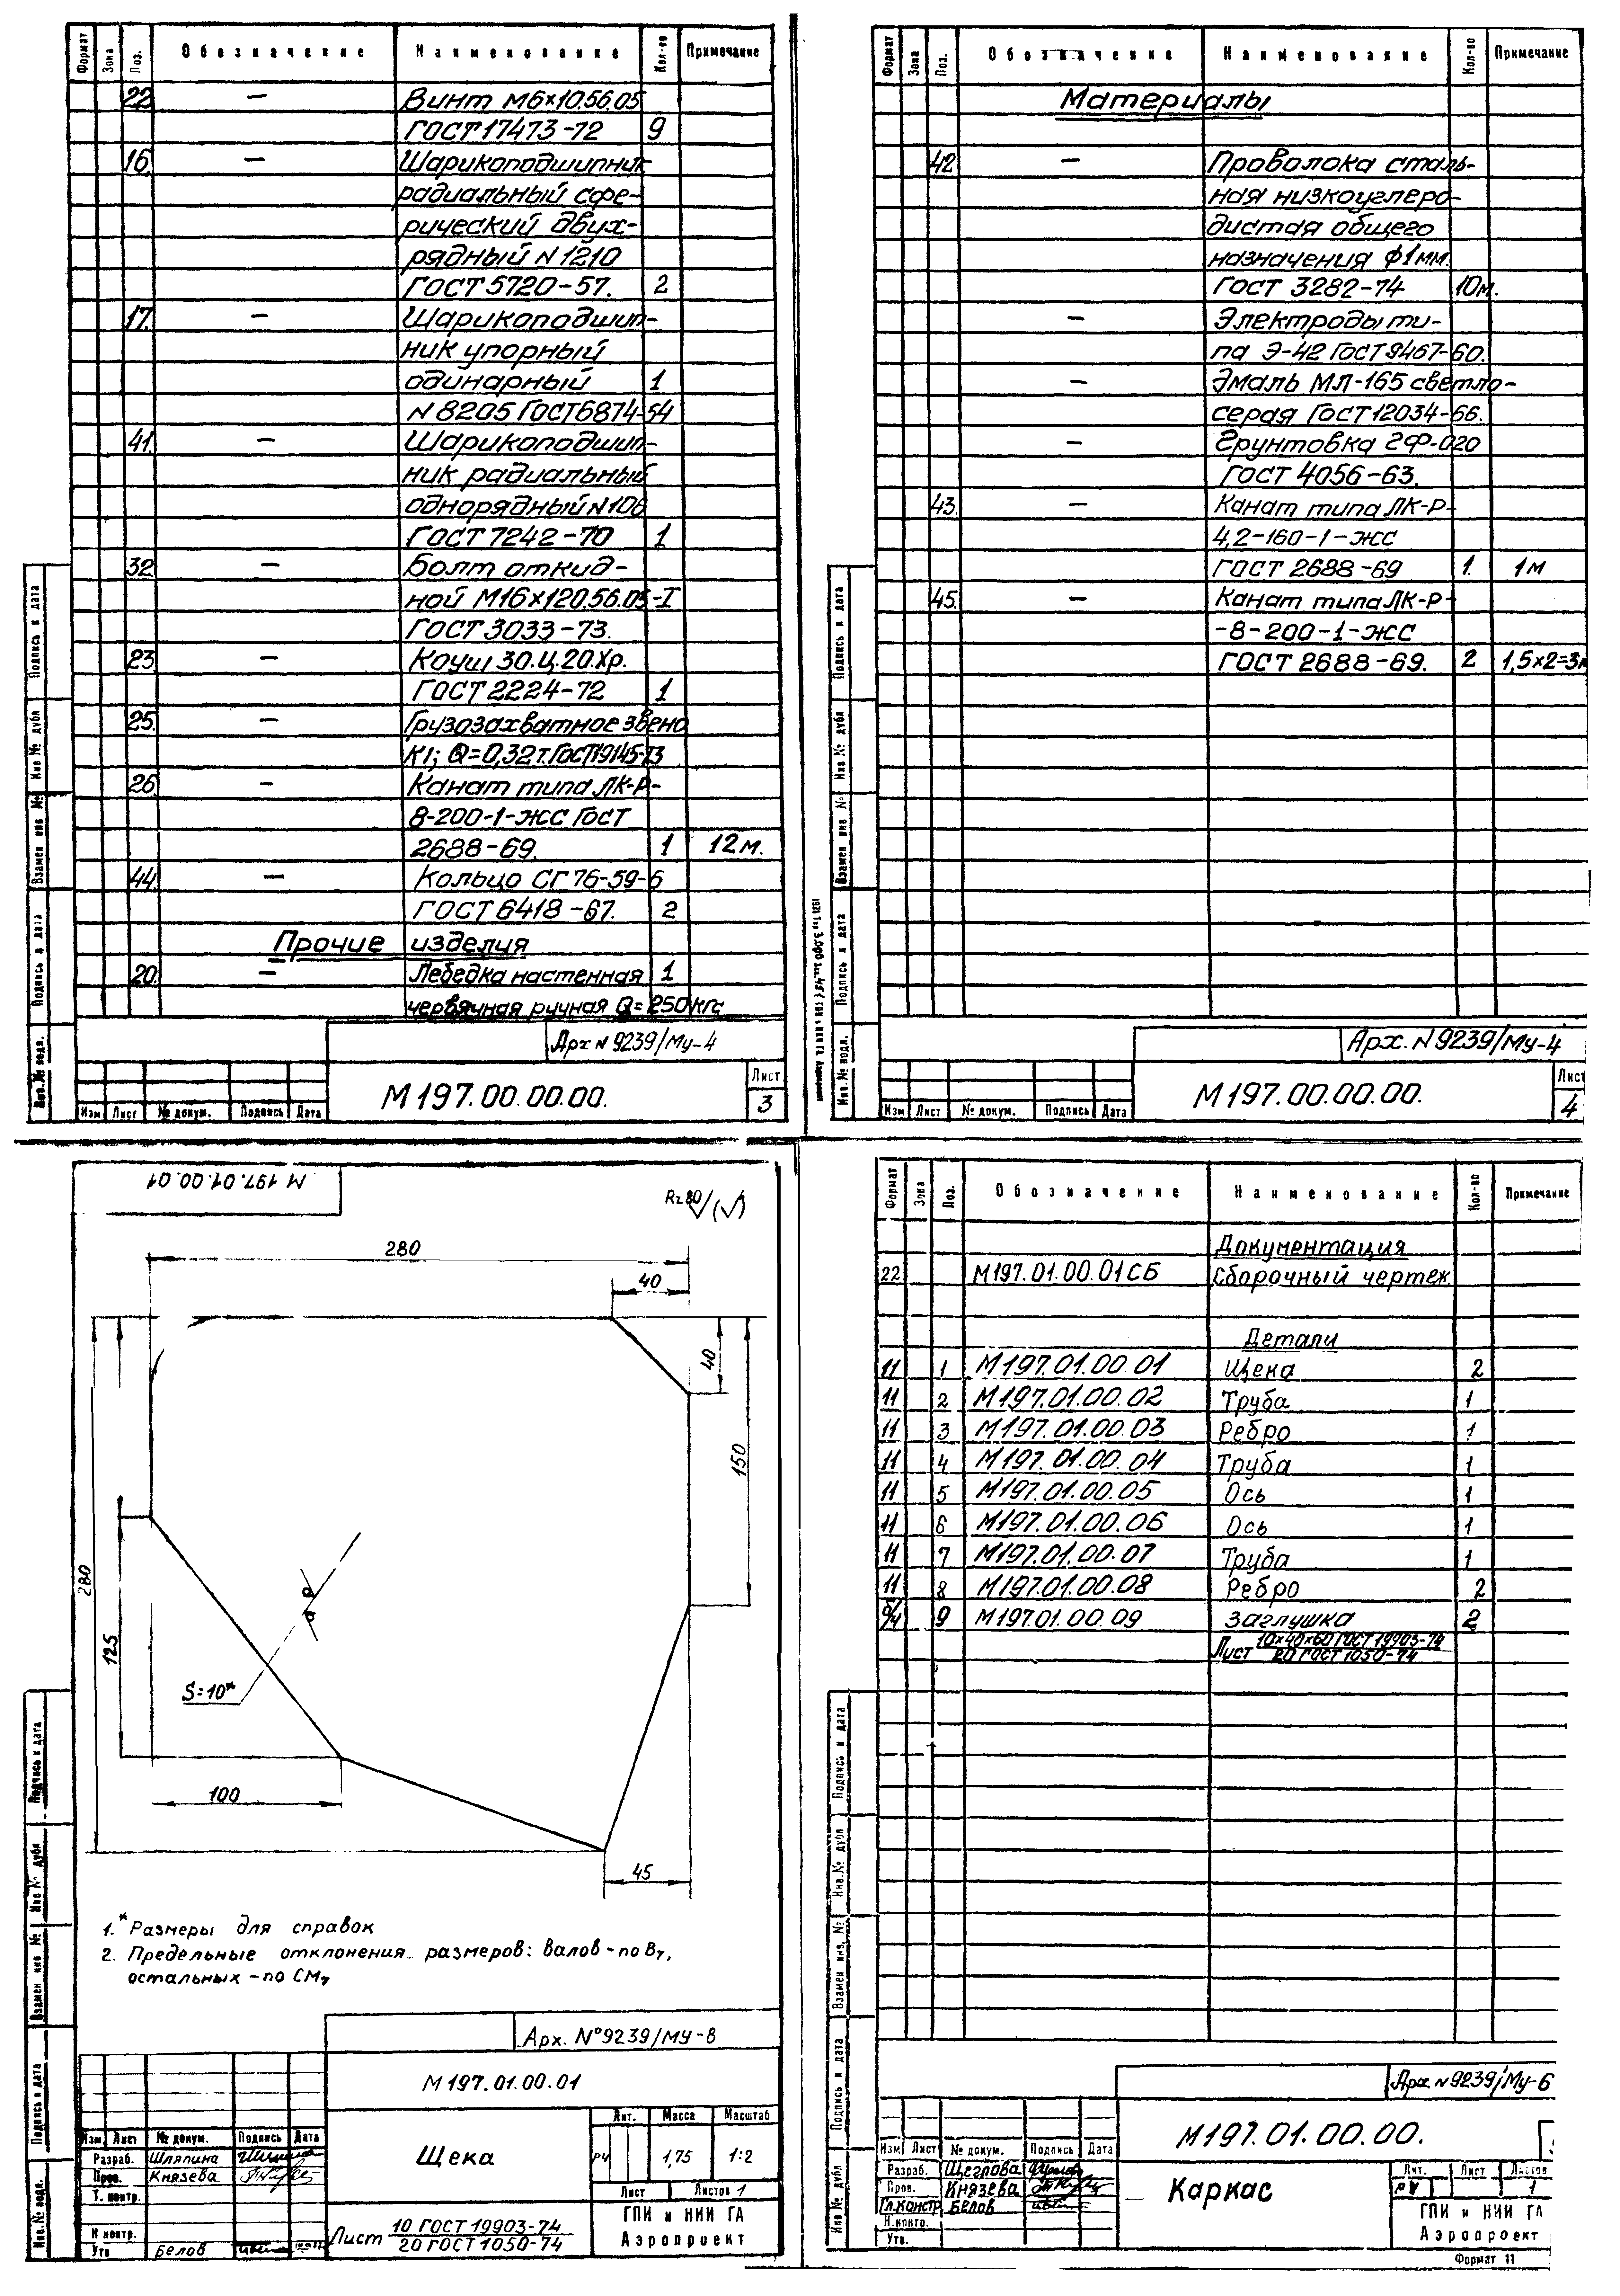 Формат Зона Поз. Обозначение Наименование Кол-во Примечание
22 — Винт М6×10.56.05
ГОСТ 17473-72 9
16. — Шарикоподшипник
радиальный сфе-
рический двух-
рядный N 1210
ГОСТ 5720-57. 2
17. — Шарикоподшип-
ник упорный
одинарный 1
N 8205 ГОСТ 6874-54
41. — Шарикоподшип-
ник радиальный
однорядный N 106
ГОСТ 7242-70 1
32. — Болт откид-
ной М16×120.56.05-I
ГОСТ 3033-73.
23. — Коуш 30.Ц.20.Хр.
ГОСТ 2224-72 1
25. — Грузозахватное звено
К1; Q=0,32т. ГОСТ 19145-73
26. — Канат типа ЛК-Р-
8-200-1-ЖСС ГОСТ
2688-69. 1 12м.
44. — Кольцо СГ 76-59-6
ГОСТ 6418-67. 2
Прочие изделия
20. — Лебедка настенная 1
червячная ручная Q=250кгс
Арх N 9239/Му-4
М197.00.00.00.
Лист
3
Изм Лист № докум. Подпись Дата
Подпись и дата
Инв № дубл
Взамен инв №
Подпись и дата
Инв. № подл.
Формат Зона Поз. Обозначение Наименование Кол-во Примечание
Материалы
42 — Проволока сталь-
ная низкоуглеро-
дистая общего
назначения ф1мм.
ГОСТ 3282-74 10м.
— Электроды ти-
па Э-42 ГОСТ 9467-60.
— Эмаль МЛ-165 светло-
серая ГОСТ 12034-66.
— Грунтовка ГФ-020
ГОСТ 4056-63.
43. — Канат типа ЛК-Р-
4,2-160-1-ЖСС
ГОСТ 2688-69 1. 1м
45. — Канат типа ЛК-Р-
-8-200-1-ЖСС
ГОСТ 2688-69. 2 1,5×2=3м
Арх. N 9239/Му-4
М197.00.00.00.
Лист
4
Изм Лист № докум. Подпись Дата
Подпись и дата
Инв № дубл
Взамен инв №
Подпись и дата
Инв. № подл.
М 197.01.00.01
Rz80 (√)
280
40
40
150
280
125
S=10*
100
45
1.* Размеры для справок
2. Предельные отклонения размеров: валов - по В7,
остальных - по СМ7
Арх. №9239/МУ-8
М 197.01.00.01
Изм. Лист № докум. Подпись Дата
Разраб. Шляпина
Пров. Князева
Т. контр.
Н контр.
Утв Белов
Щека
Лит. Масса Масштаб
РЧ 1,75 1:2
Лист Листов 1
Лист 10 ГОСТ 19903-74
20 ГОСТ 1050-74
ГПИ и НИИ ГА
Аэропроект
Подпись и дата
Инв № дубл
Взамен инв №
Подпись и дата
Инв. № подл.
Формат Зона Поз. Обозначение Наименование Кол-во Примечание
Документация
22 М197.01.00.01СБ Сборочный чертеж
Детали
11 1 М197.01.00.01 Щека 2
11 2 М197.01.00.02 Труба 1
11 3 М197.01.00.03 Ребро 1
11 4 М197.01.00.04 Труба 1
11 5 М197.01.00.05 Ось 1
11 6 М197.01.00.06 Ось 1
11 7 М197.01.00.07 Труба 1
11 8 М197.01.00.08 Ребро 2
б/ч 9 М197.01.00.09 Заглушка 2
Лист 10×40×60 ГОСТ 19903-74
20 ГОСТ 1050-74
Арх N 9239/Му-6
М197.01.00.00.
Изм Лист № докум. Подпись Дата
Разраб. Щеглова
Пров. Князева
Гл.констр Белов
Н.контр.
Утв.
Каркас
Лит. Лист Листов
РЧ 1
ГПИ и НИИ ГА
Аэропроект
Формат 11
Подпись и дата
Инв. № дубл
Взамен инв. №
Подпись и дата
Инв № дубл